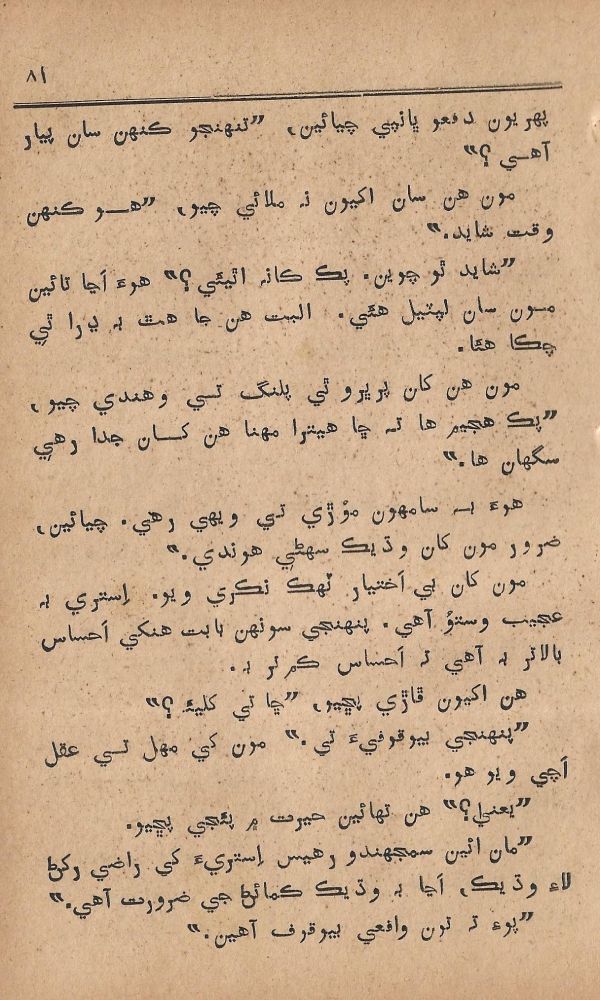 ۸۱
پھريون دفعو ڀانپي چيائين، ”تنهنجو ڪنهن سان پيار
آهي؟“
مون هن سان اکيون نہ ملائي چيو، ”هو ڪنهن
وقت شايد.“
”شايد ٿو چوين. پڪ ڪانہ اٿيئي؟“ هوءَ اڃا تائين
مون سان لپٽيل هئي. البت هن جا هٿ بہ ڍرا ٿي
چڪا هئا.
مون هن کان پرڀرو ٿي پلنگ تي وهندي چيو،
”پڪ هجيم ها تہ ڇا هيترا مهنا هن کان جدا رهي
سگهان ها.“
هوءَ بہ سامهون موڙي تي ويهي رهي. چيائين،
ضرور مون کان وڌيڪ سهڻي هوندي.“
مون کان بي اختيار ٽهڪ نڪري ويو. اِستري بہ
عجيب وستوُ آهي. پنهنجي سونهن بابت هنکي احساس
بالاتر بہ آهي تہ احساس ڪمتر بہ.
هن اکيون ڦاڙي پڇيو، ”ڇا تي کليئہ؟“
”پنهنجي بيوقوفيءَ تي.“ مون کي مهل تي عقل
اچي ويو هو.
”يعني؟“ هن تهائين حيرت ۾ پئجي پڇيو.
”مان ائين سمجهندو رهيس اِستريءَ کي راضي رکڻ
لاءِ وڌيڪ، اڃا بہ وڌيڪ ڪمائڻ جي ضرورت آهي.“
”پوءِ تہ تون واقعي بيوقوف آهين.“